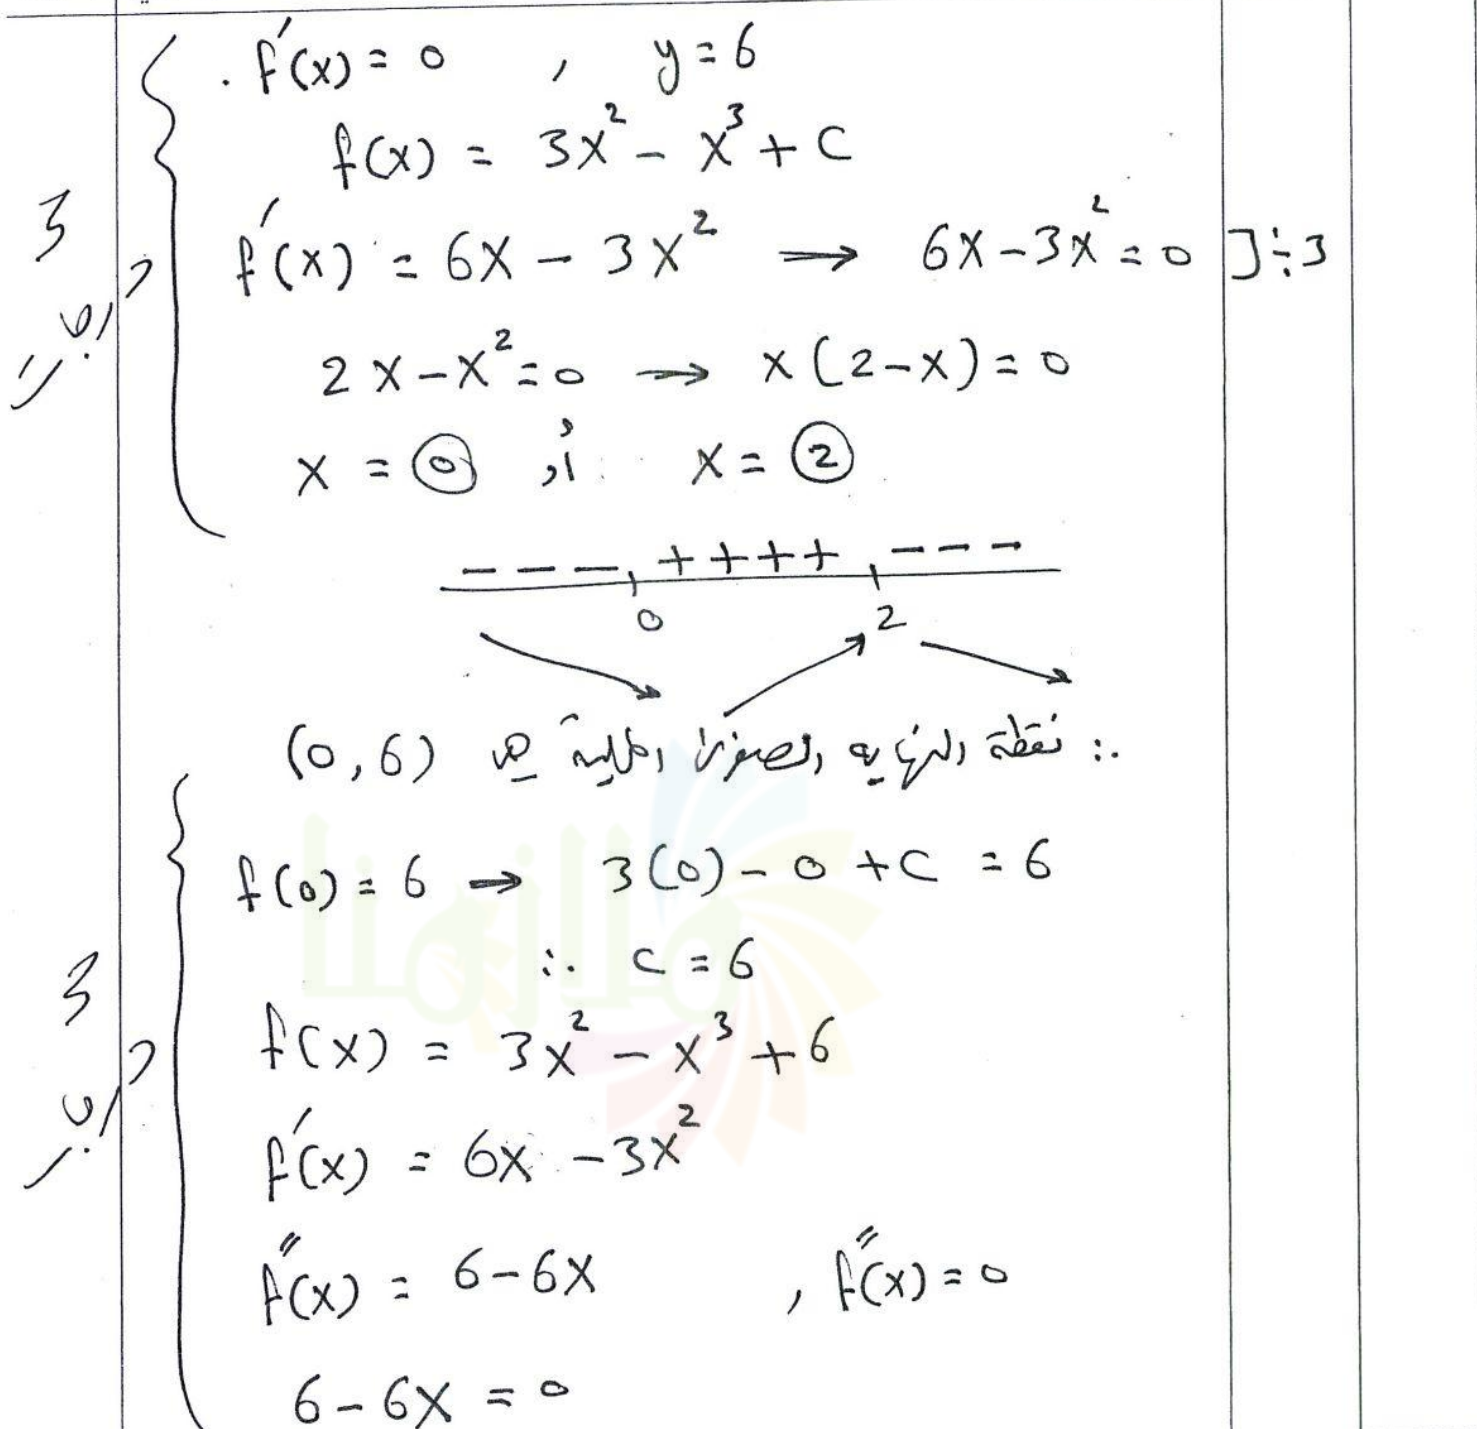 f′(x) = 0 , y = 6
f(x) = 3x² − x³ + C
f′(x) = 6x − 3x² → 6x − 3x² = 0 ] ÷ 3
2x − x² = 0 → x(2 − x) = 0
x = 0 أو x = 2
− − − + + + + − − −
0 2
∴ نقطة النهايه الصغرى المحلية هي (0,6)
f(0) = 6 → 3(0) − 0 + C = 6
∴ C = 6
f(x) = 3x² − x³ + 6
f′(x) = 6x − 3x²
f″(x) = 6 − 6x , f″(x) = 0
6 − 6x = 0
ملازمنا